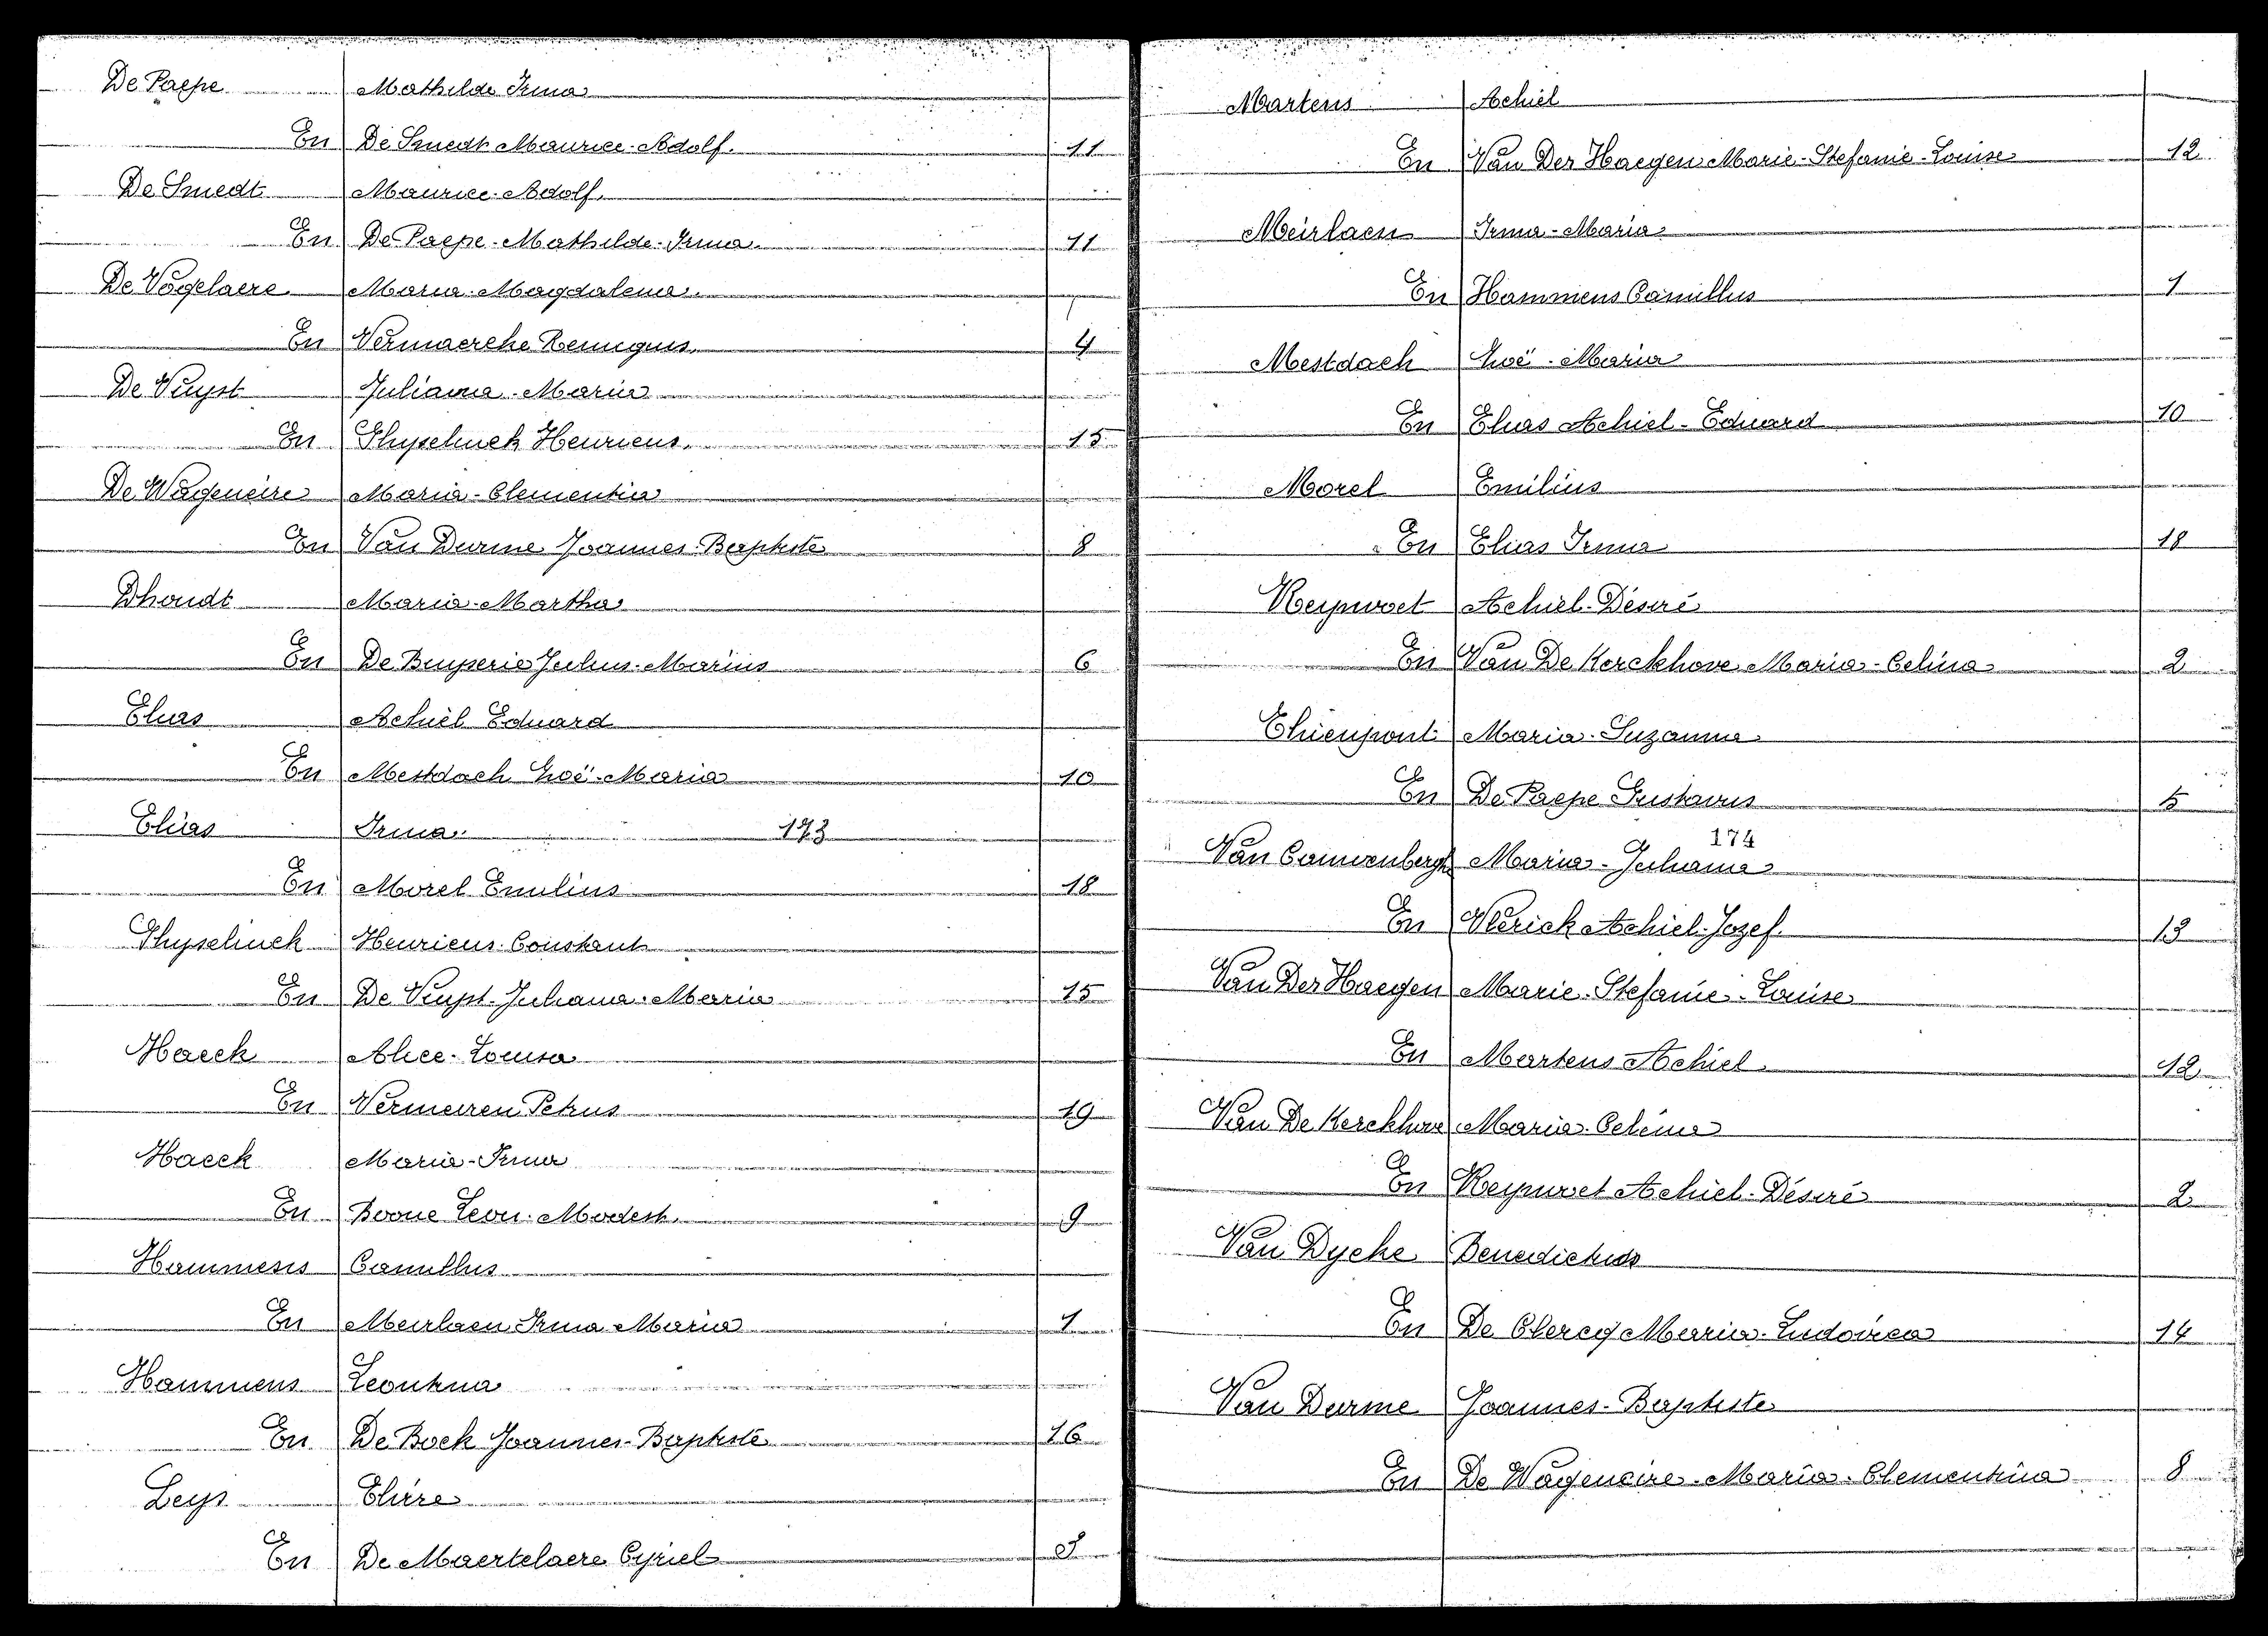 De Paepe Mathilde Irma
En De Smedt Maurice-Adolf. 11
De Smedt Maurice-Adolf.
En De Paepe-Mathilde-Irma. 11
De Vogelaere Maria-Magdalena.
En Vermaercke Remigius. 4
De Vuyst Juliana-Maria
En Ghyselinck Henricus. 15
De Wageneire Maria-Clementia
En Van Durme Joannes-Baptiste 8
Dhondt Maria-Martha
En De Buyserie Julius-Marius 6
Elias Achiel Eduard
En Mestdach Zoë-Maria 10
Elias Irma. 173
En Morel Emilius 18
Ghyselinck Henricus-Constant
En De Vuyst-Juliana-Maria 15
Haeck Alice-Louisa
En Vermeiren Petrus 19
Haeck Maria-Irma
En Boone Leon-Modest. 9
Hammens Camillus
En Meirlaen Irma-Maria 1
Hammens Leontina
En De Bock Joannes-Baptiste 16
Leys Elvire
En De Maertelaere Cyriel
Martens Achiel
En Van Der Haegen Marie-Stefanie-Louise 12
Meirlaen Irma-Maria
En Hammens Camillus 1
Mestdach Zoë-Maria
En Elias Achiel-Eduard 10
Morel Emilius
En Elias Irma 18
Reypwoet Achiel-Désiré
En Van De Kerckhove Maria-Celina 2
Thienpont Maria-Suzanna
En De Paepe Gustavus 5
174
Van Cauwenberghe Maria-Juliana
En Vlerick Achiel-Jozef 13
Van Der Haegen Marie-Stefanie-Louise
En Martens Achiel 12
Van De Kerckhove Maria-Celina
En Reypwoet Achiel-Désiré 2
Van Dycke Benedictus
En De Clercq Maria-Ludovica 14
Van Durme Joannes-Baptiste
En De Wageneire-Maria-Clementina 8